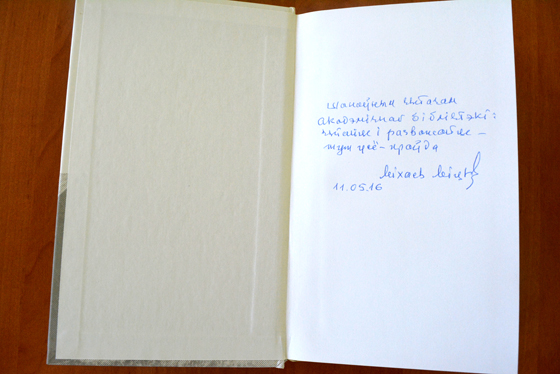 шаноўным чытачам
акадэмічнае бібліятэкі:
чытайце і разважайце –
тут усё – праўда
Міхась
11.05.16